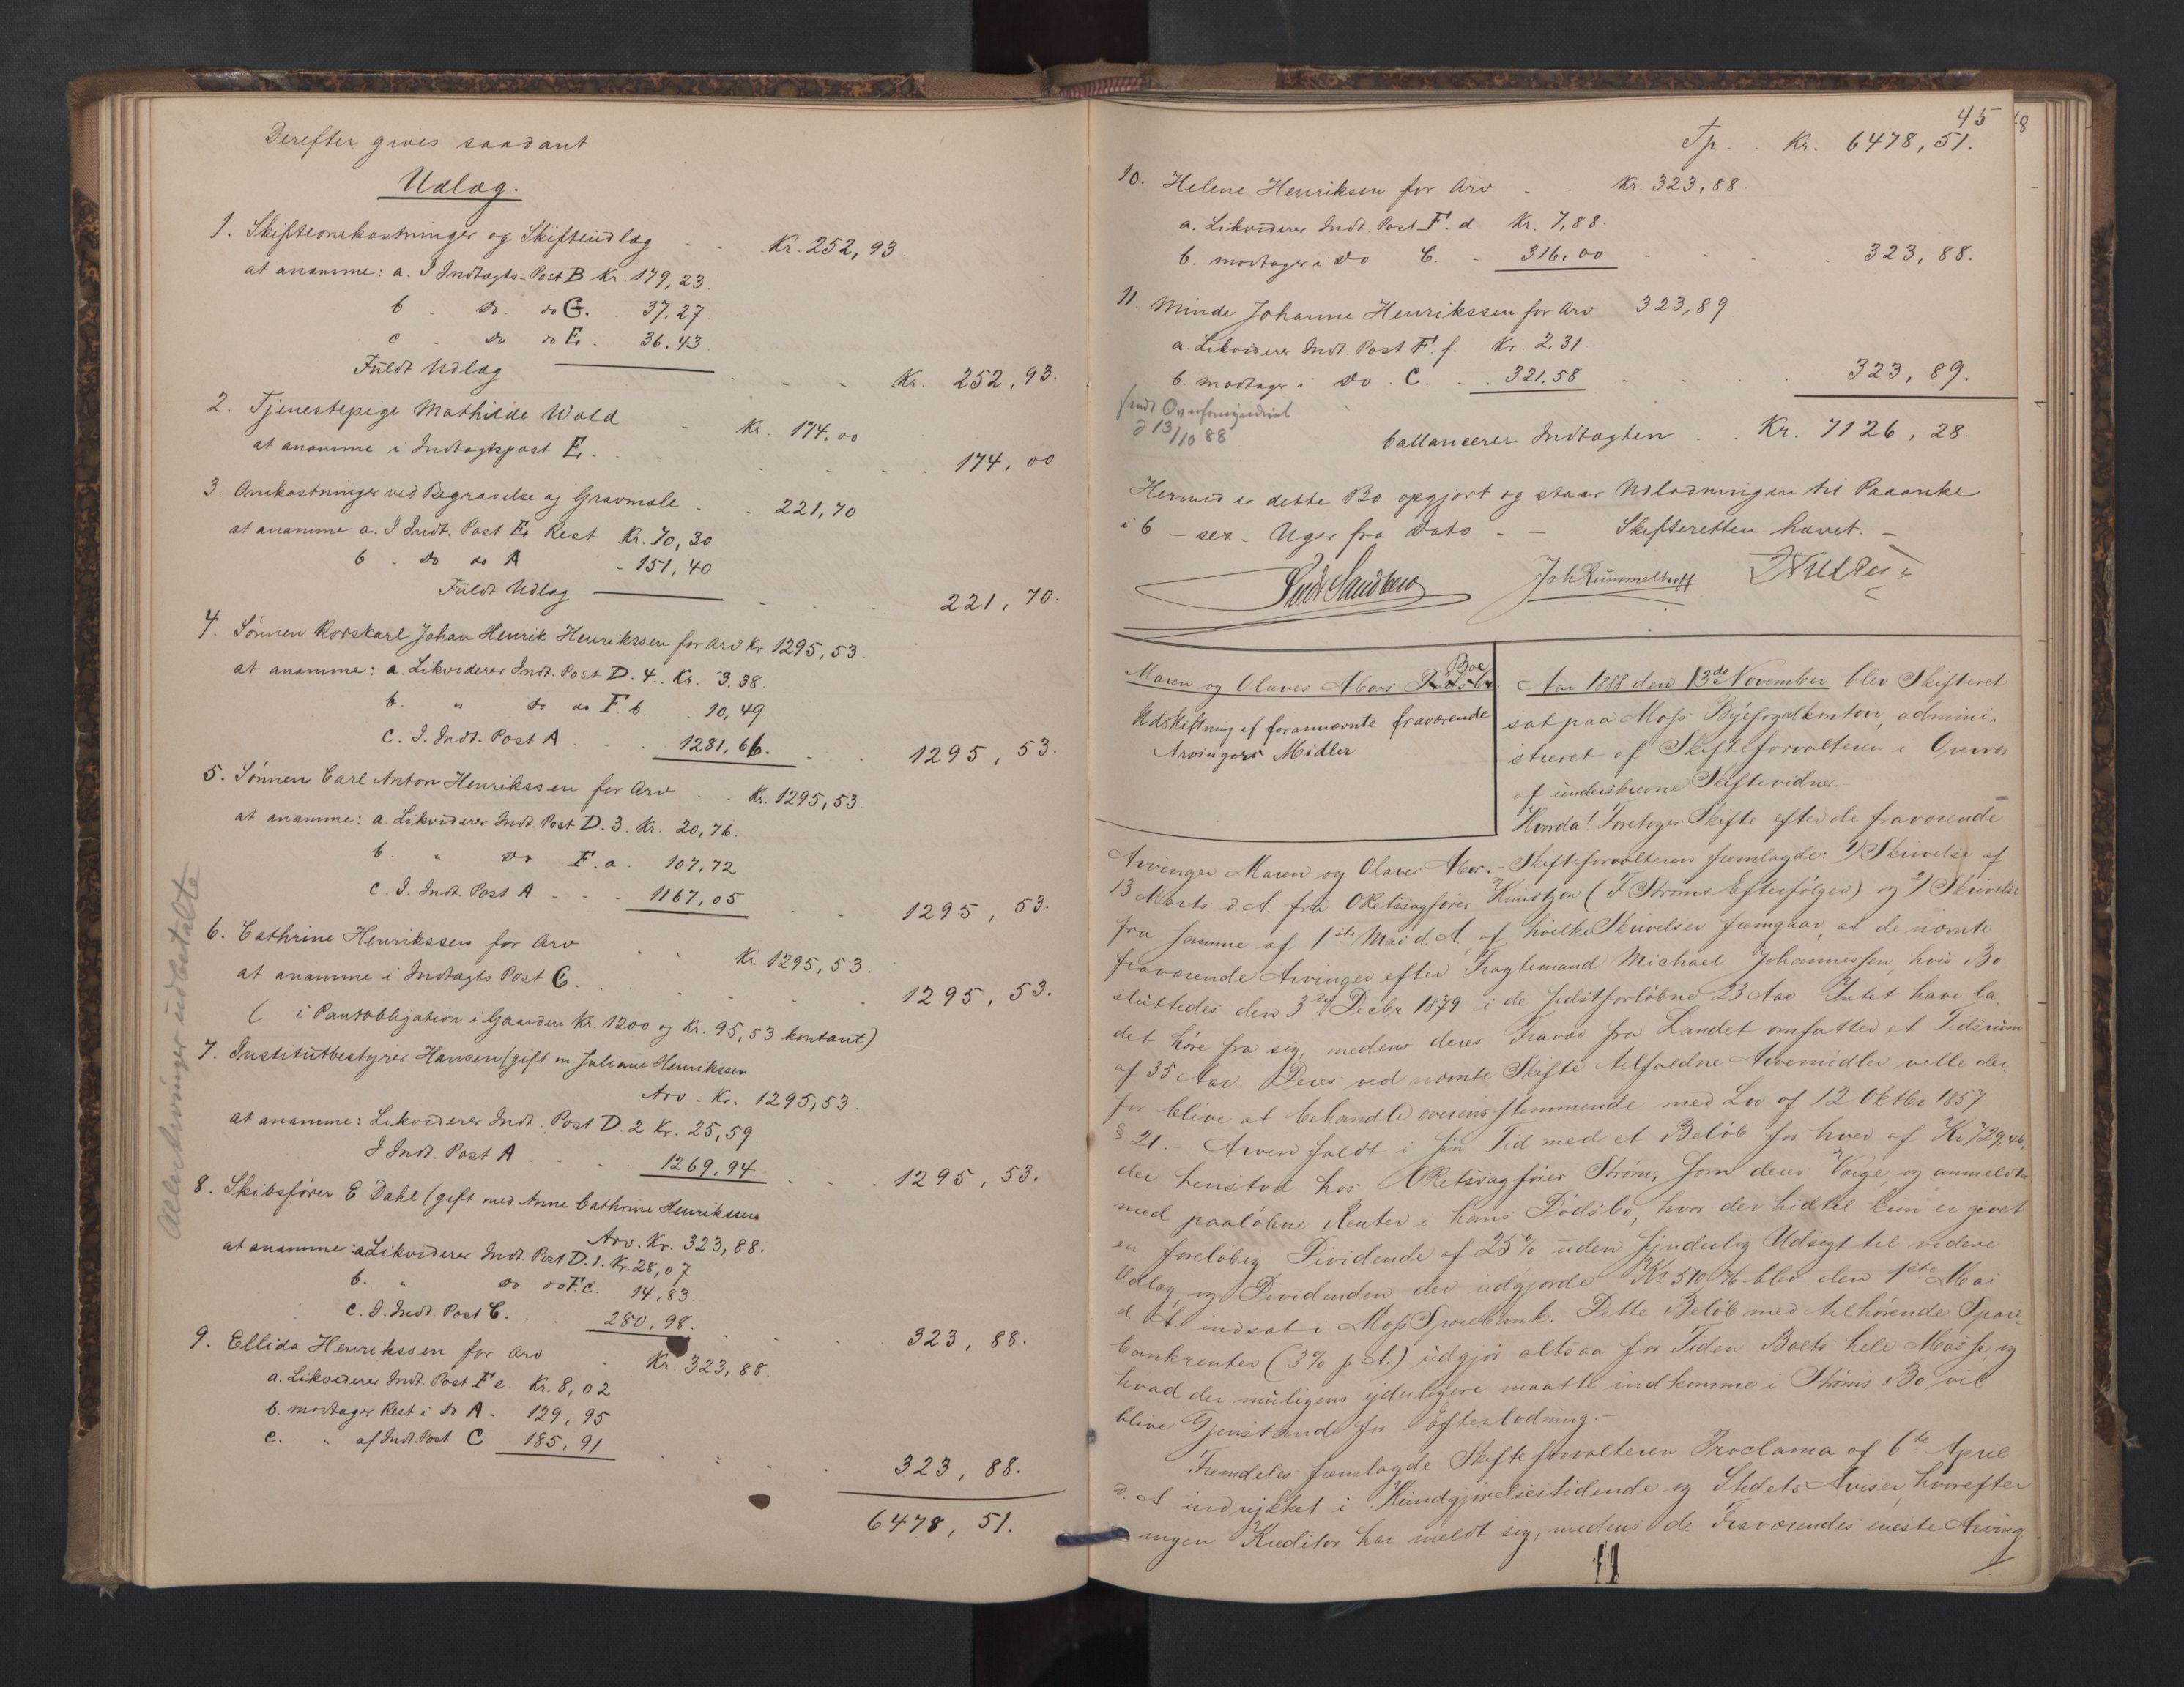 Derefter gives saadant
Udlæg.
1. Skifteomkostninger og Skifteudlæg - - Kr. 252,93.
at anamme: a. I Indtægts-Post B Kr. 179,23.
b - do. do G. 37.27
c - do do E. 36.43.
Fuldt Udlæg - - - Kr. 252,93.
2. Tjenestepige Mathilde Wold - Kr. 174.00
at anamme i Indtægtspost E. - - - 174,00
3. Omkostninger ved Begravelse og Gravmæle - - 221,70
at anamme a. I Indt. Post E. Rest Kr. 70,30
b - do do A - 151,40
Fuldt Udlæg - - - 221,70.
4. Sønnen Korskarl Johan Henrik Henrikssen for Arv Kr 1295,53.
at anamme: a. Likviderer Indt. Post D. 4. Kr. 3.38.
b. " do do F. b. 10,49.
c. I. Indt. Post A - - 1281,66. - - 1295,53.
5. Sønnen Carl Anton Henrikssen for Arv - - Kr. 1295,53.
at anamme: a. Likviderer Indt. Post D. 3. Kr. 20,76.
b. " do F. a. 107,72
c. I. Indt. Post A - - - 1167,05 - - 1295,53.
6. Cathrine Henrikssen for Arv - - Kr. 1295,53.
at anamme i Indtægts Post C. - - - 1295,53.
( i Pantobligation i Gaarden Kr. 1200 og Kr. 95,53 kontant)
7. Institutbestyrer Hansen (gift m. Juliane Henrikssen
Arv - Kr. 1295,53.
at anamme: Likviderer Indt. Post D. 2 Kr. 25,59
I Indt. Post A - - - 1269,94. - - - 1295,53.
8. Skibsfører E Dahl (gift med Anne Cathrine Henrikssen
Arv. Kr. 323,88.
at anamme: a Likviderer Indt. Post D. 1. Kr. 28,07
b. " do do F. c. 14,83.
c. I. Indt. Post C. . 280,98. - - - 323,88.
9. Ellida Henrikssen for Arv - Kr. 323,88.
a. Likviderer Indt. Post F e. Kr. 8,02
b. modtager Rest i do A - 129,95
c. " af Indt. Post C 185,91 - - - 323,88.
6478,51.
Alle Arvinger udbetalte
45
48
Tp. . Kr. 6478,51.
10. Helene Henriksen for Arv - - Kr. 323,88.
a. Likviderer Indt. Post F. d. Kr. 7,88.
b. modtager i do C. - 316,00 - - - 323,88.
11. Minde Johanne Henrikssen for Arv 323,89
a. Likviderer Indt. Post F. f. Kr. 2.31
b. modtager i do. C. - . 321,58 - - - 323,89.
sendt Overformynderiet
d 13/10 88
ballancerer Indtægten . . Kr. 7126,28.
Hermed er dette Bo opgjort og staar Udlodningen til Paaanke
i 6 - sex - Uger fra Dato - - Skifteretten hævet. -
Joh Rummelhoff
Maren og Olaves Abors Boe
Udskiftning af forannævnte fraværende
Arvingers Midler
Aar 1888 den 13de November blev Skifteret
sat paa Moss Byfogedkontor, admini-
streret af Skifteforvalteren i Overvær
af underskrevne Skiftevidner. -
Hvorda! Foretoges Skifte efter de fraværende
Arvinger Maren og Olaves Abor. - Skifteforvalteren fremlagde: 1/ Skrivelse af
13 Marts d. A. fra ORetssagfører Knudtzon (F Strøms Efterfølger) og 2/ Skrivelse
fra samme af 1ste Mai d. A. af hvilke Skrivelser fremgaar, at de nævnte
fraværende Arvinger efter Fragtemand Michael Johannessen, hvis Bo
sluttedes den 3die Decbr 1879 i de sidstforløbne 23 Aar Intet have la-
det høre fra sig, medens deres Fravær fra Landet omfatter et Tidsrum
af 35 Aar. Deres ved nævnte Skifte tilfaldne Arvemidler ville der-
for blive at behandle overensstemmende med Lov af 12 Oktbr 1857
§ 21. - Arven faldt i sin Tid med et Beløb for hver af Kr 729,46,
der henstod hos ORetssagfører Strøm, som deres Værge, og anmeldtes
med paaløbne Renter i hans Dødsbo, hvor der hidtil kun er givet
en foreløbig Dividende af 25% uden synderlig Udsigt til videre
Udlæg og Dividenden der udgjorde Kr 510.76 blev den 1ste Mai
d. A. indsat i Moss Sparebank. Dette Beløb med tilhørende Spare-
bankrenter (3% p. A.) udgjør altsaa for Tiden Boets hele Masse og
hvad der muligens yderligere maatte indkomme i Strøms Bo, vil
blive Gjenstand for Efterlodning. -
Fremdeles fremlagde Skifteforvalteren Proclama af 6te April
d. A indrykket i Kundgjørelsestidende og Stedets Aviser, hvorefter
ingen Kreditor har meldt sig, medens de Fraværendes eneste Arving